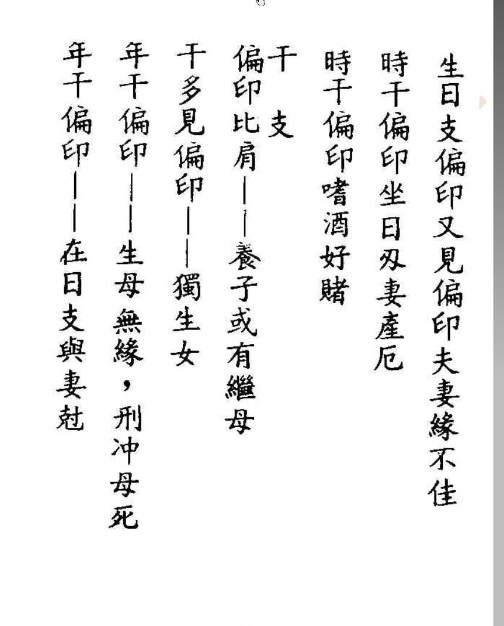 生日支偏印又見偏印夫妻緣不佳
時干偏印坐日刄妻產厄
時干偏印嗜酒好賭
干　支
偏印比肩——養子或有繼母
干多見偏印——獨生女
年干偏印——生母無緣，刑冲母死
年干偏印——在日支與妻尅